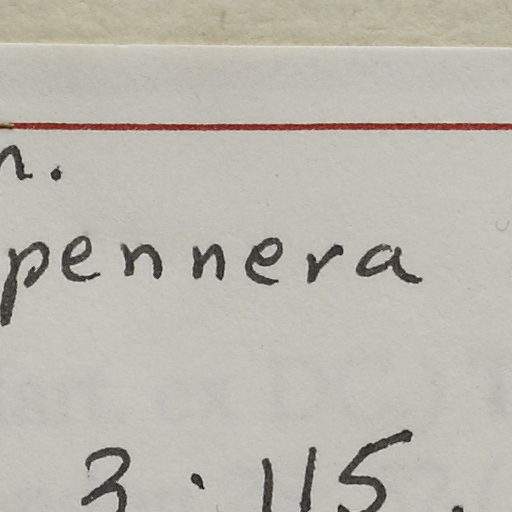 n.
pennera
3:115.